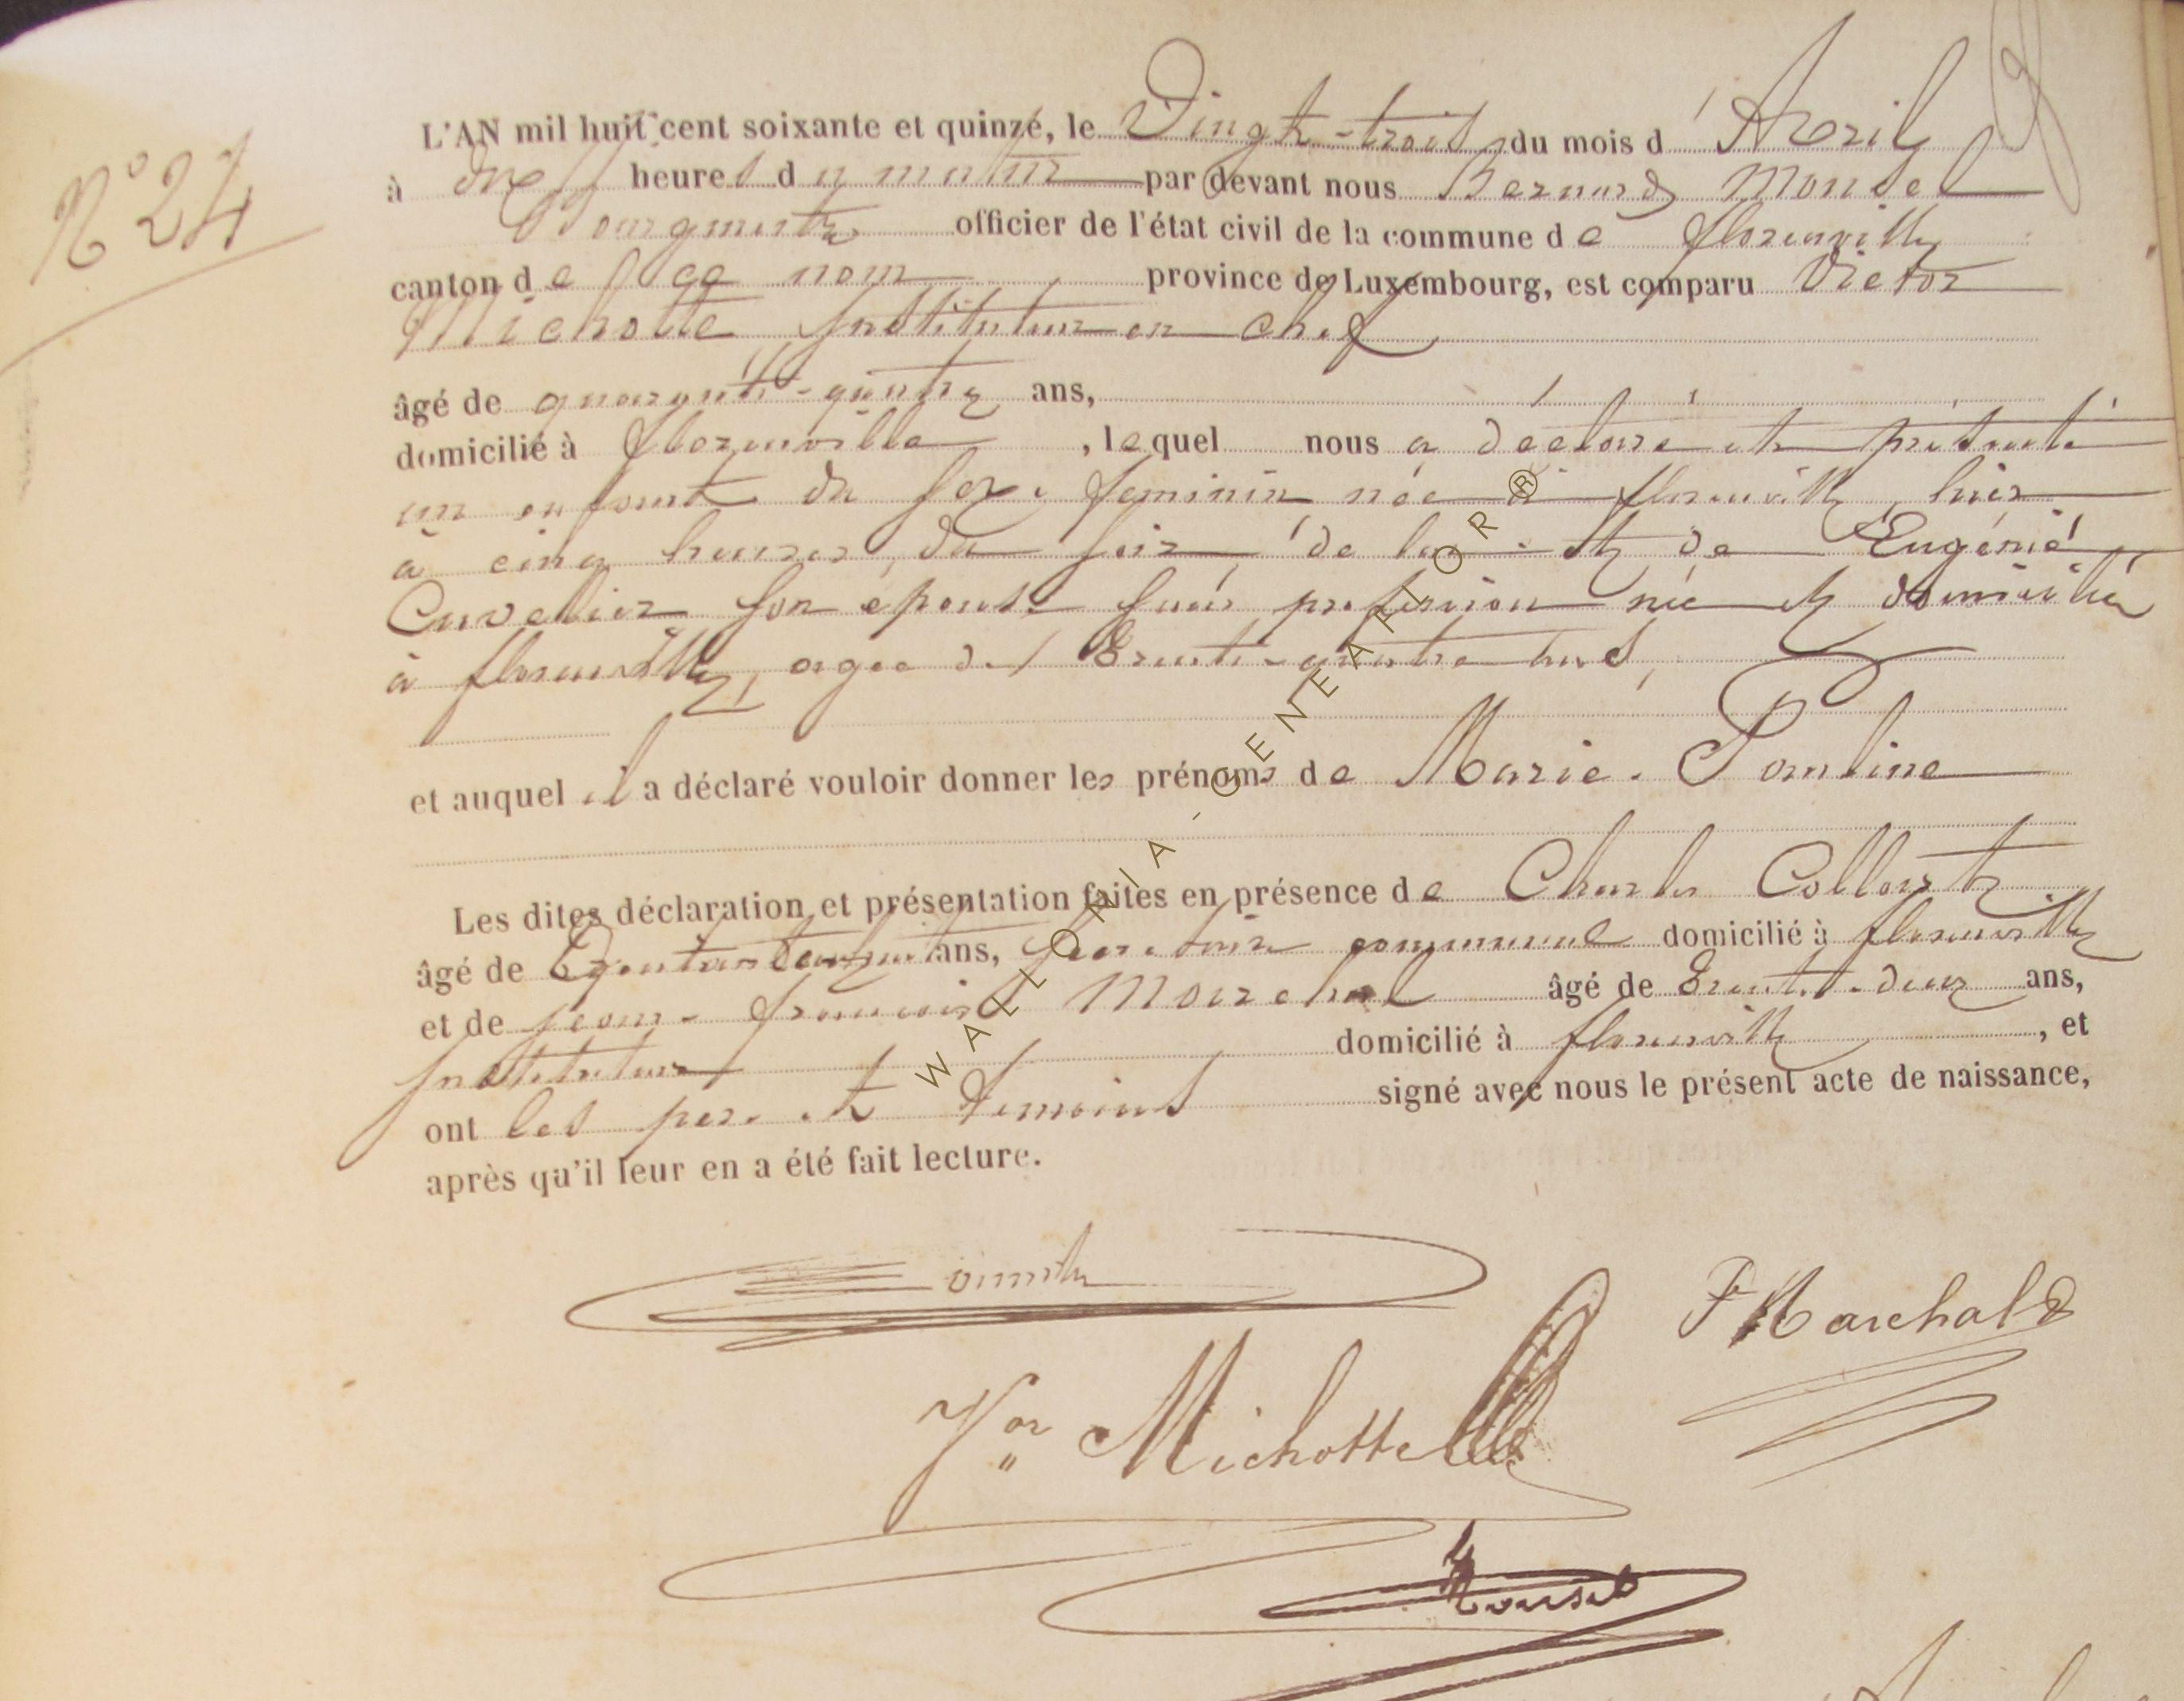 N° 24
L'AN mil huit cent soixante et quinze, le Vingt-trois du mois d'Avril
à dix heures du matin par devant nous Bernard Monsel
Bourgmestre officier de l'état civil de la commune de florenville
canton de ce nom province de Luxembourg, est comparu Victor
Michotte Instituteur en chef
âgé de quarante-quatre ans,
domicilié à florenville, lequel nous a déclaré et présenté
un enfant du sexe feminin née à florenville, hier
à cinq heures du soir, de lui et de Eugénie
Cuvelier son épouse sans profession née et domiciliée
à florenville, agée de trente-quatre ans,
et auquel il a déclaré vouloir donner les prénoms de Marie-Pauline
Les dites déclaration et présentation faites en présence de Charles Collart
âgé de ans, Secrétaire communal domicilié à florenville
et de jean-francois Marchal âgé de trente-deux ans,
Instituteur domicilié à florenville, et
ont les père et témoins signé avec nous le présent acte de naissance,
après qu'il leur en a été fait lecture.
F Marchal
Vor Michotte
Monsel
WALLONIA - GENEALOR ®